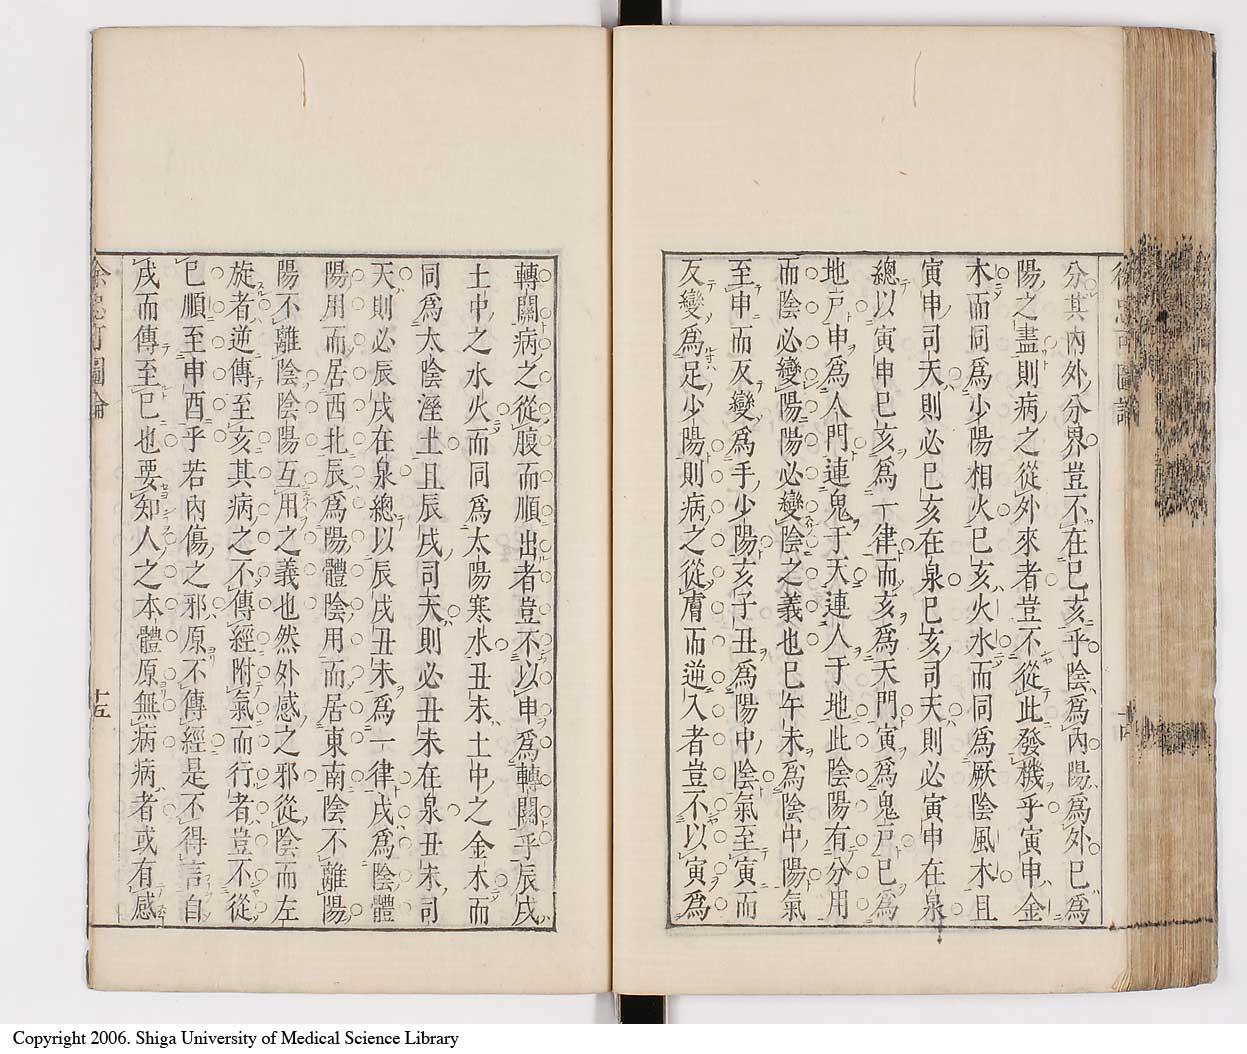 分其內外分界豈不在巳亥乎陰爲內陽爲外巳爲
陽之盡則病之從外來者豈不從此發機乎寅申金
木而同爲少陽相火巳亥火水而同爲厥陰風木且
寅申司天則必巳亥在泉巳亥司天則必寅申在泉
總以寅申巳亥爲一律而亥爲天門寅爲鬼戸巳爲
地戸申爲人門連鬼于天連人于地此陰陽有分用
而陰必變陽陽必變陰之義也巳午未爲陰中陽氣
至申而反變爲手少陽亥子丑爲陽中陰氣至寅而
反變爲足少陽則病之從膚而逆入者豈不以寅爲
轉關病之從腹而順出者豈不以申爲轉關乎辰戌
土中之水火而同爲太陽寒水丑未土中之金木而
同爲太陰溼土且辰戌司天則必丑未在泉丑未司
天則必辰戌在泉總以辰戌丑未爲一律戌爲陰體
陽用而居西北辰爲陽體陰用而居東南陰不離陽
陽不離陰陰陽互用之義也然外感之邪從陰而左
旋者逆傳至亥其病之不傳經附氣而行者豈不從
巳順至申酉乎若內傷之邪原不傳經是不得言自
戌而傳至巳也要知人之本體原無病病者或有感
徐忠可圖論
十五
Copyright 2006. Shiga University of Medical Science Library